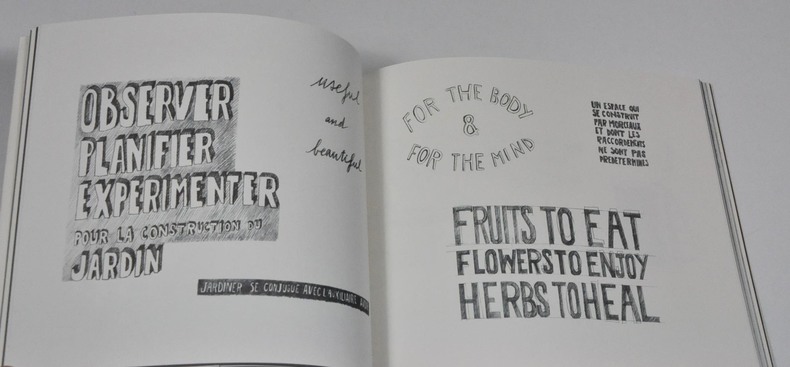 OBSERVER
PLANIFIER
EXPERIMENTER
POUR LA CONSTRUCTION DU
JARDIN
useful
and
beautiful
JARDINER SE CONJUGUE AVEC L'AUXILIAIRE
FOR THE BODY
&
FOR THE MIND
UN ESPACE QUI
SE CONSTRUIT
PAR MORCEAUX
ET DONT LES
RACCORDEMENTS
NE SONT PAS
PREDETERMINES
FRUITS TO EAT
FLOWERS TO ENJOY
HERBS TO HEAL